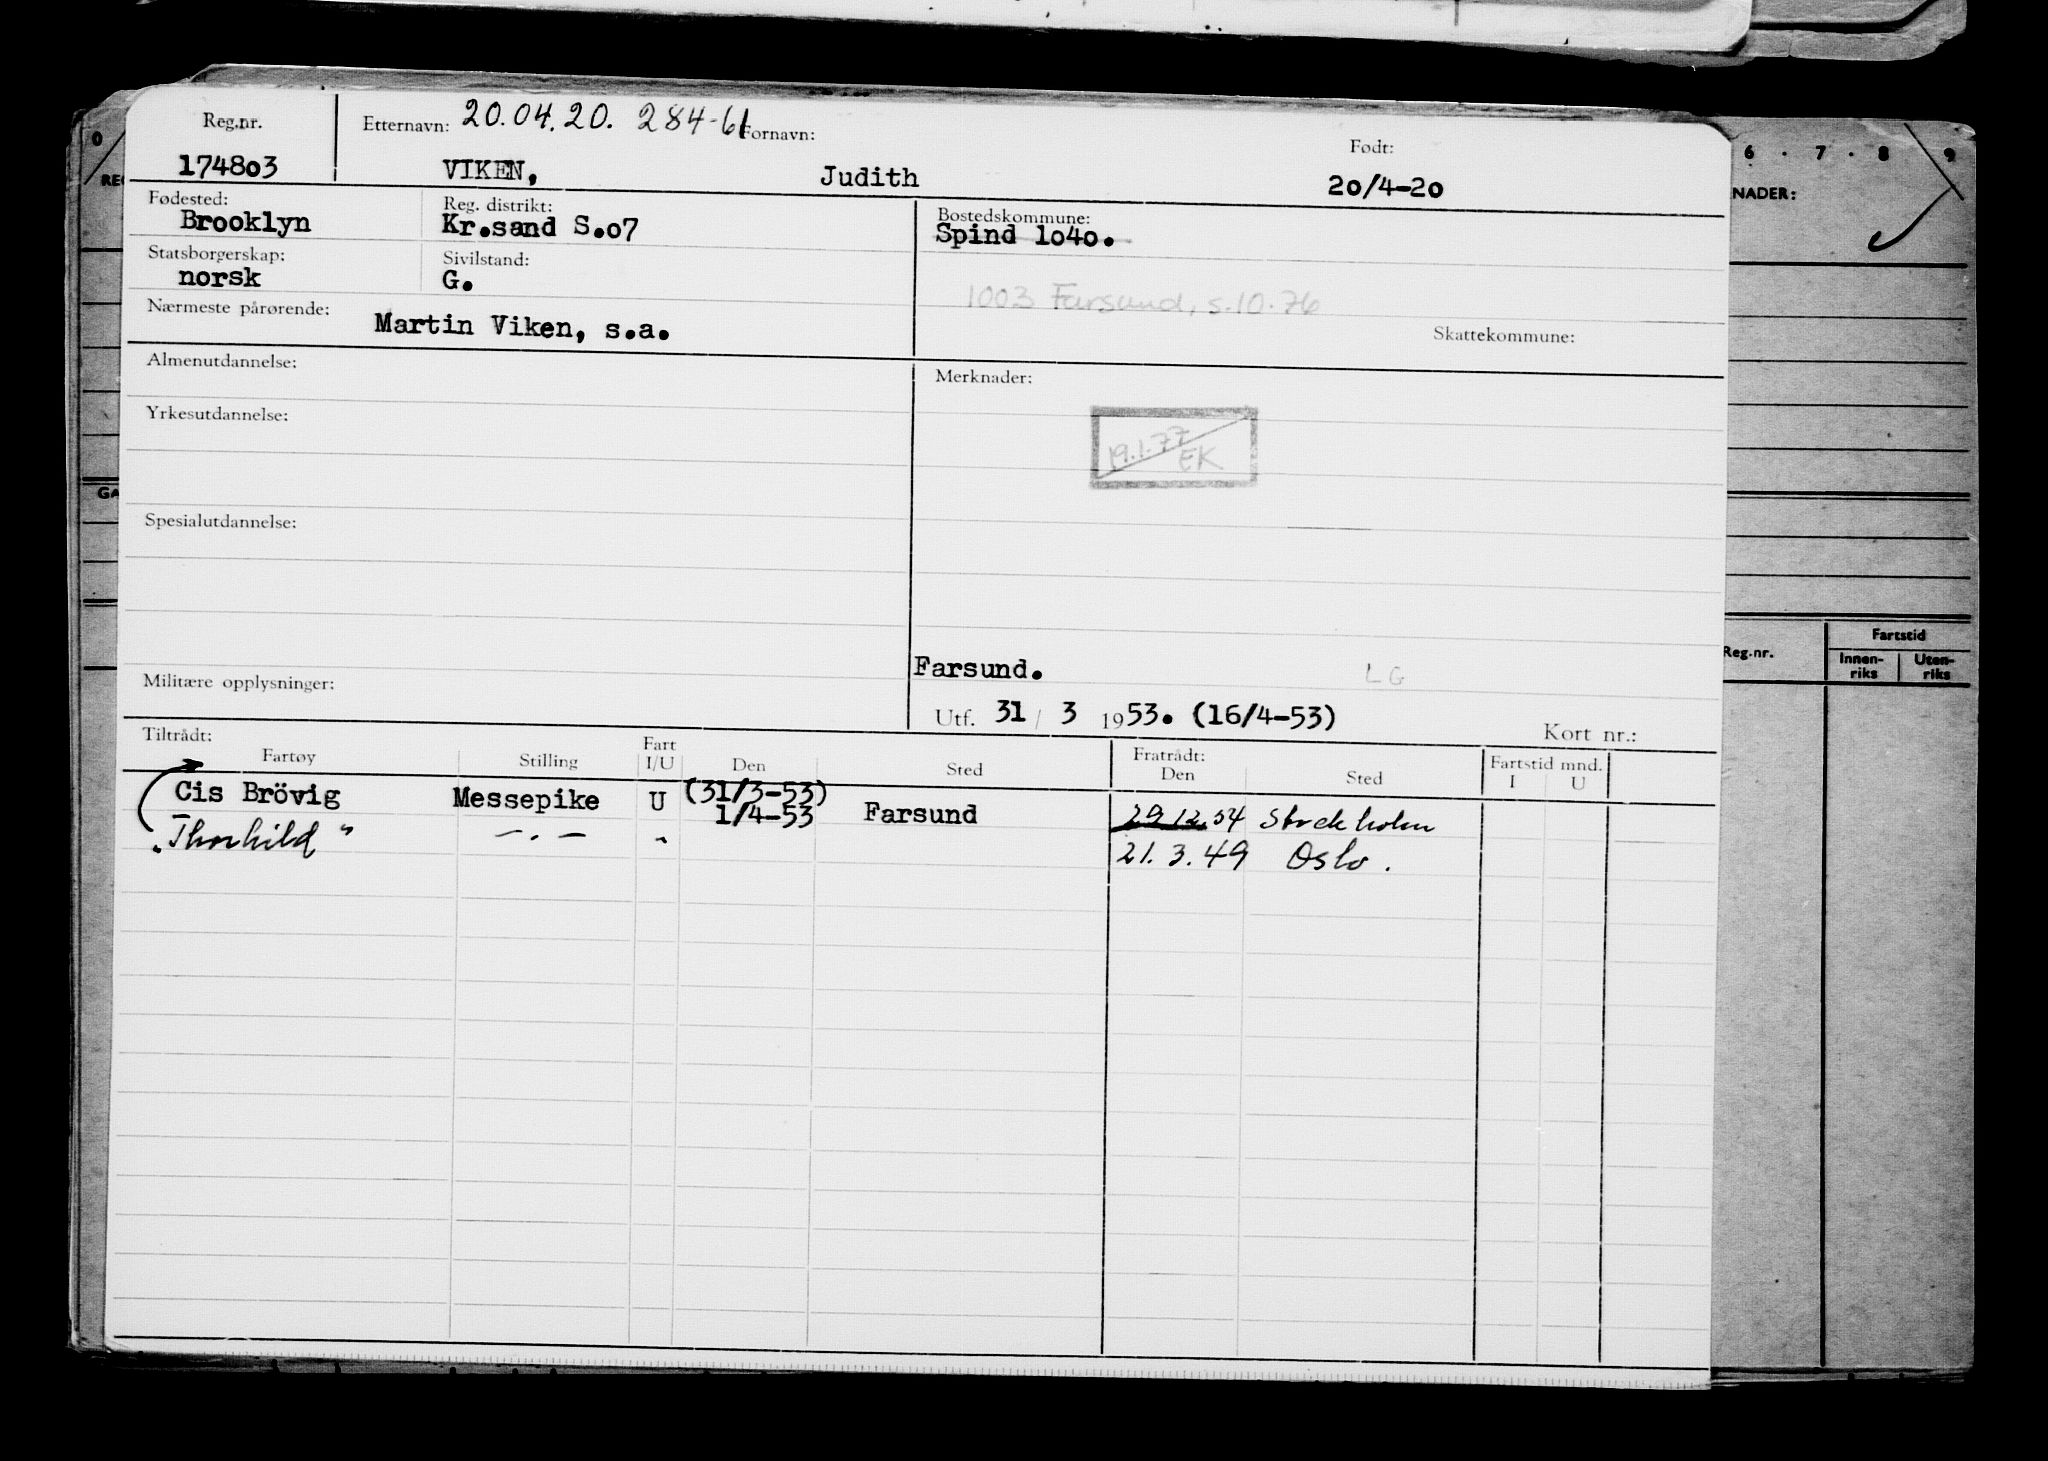 Reg.nr. Etternavn: 20.04.20. 284-61 Fornavn: Født:
174803 VIKEN, Judith 20/4-20
Fødested: Reg. distrikt: Bostedskommune:
Brooklyn Kr.sand S.o7 Spind 1o4o.
Statsborgerskap: Sivilstand:
norsk G.
1003 Farsund, s.10.76
Nærmeste pårørende: Martin Viken, s.a. Skattekommune:
Almenutdannelse: Merknader:
Yrkesutdannelse:
19.1.77
EK
Spesialutdannelse:
Farsund. LG
Militære opplysninger:
Utf. 31 / 3 1953. (16/4-53) Kort nr.:
Tiltrådt: Fart Fratrådt: Fartstid mnd.
Fartøy Stilling I/U Den Sted Den Sted I U
Cis Brövig Messepike U (31/3-53)
1/4-53 Farsund 29.12.54 Stockholm
"Thorhild" -.- " 21.3.49 Oslo.
0 6 . 7 . 8 . 9
NADER:
GA
Reg.nr. Fartstid
Innen-
riks Uten-
riks